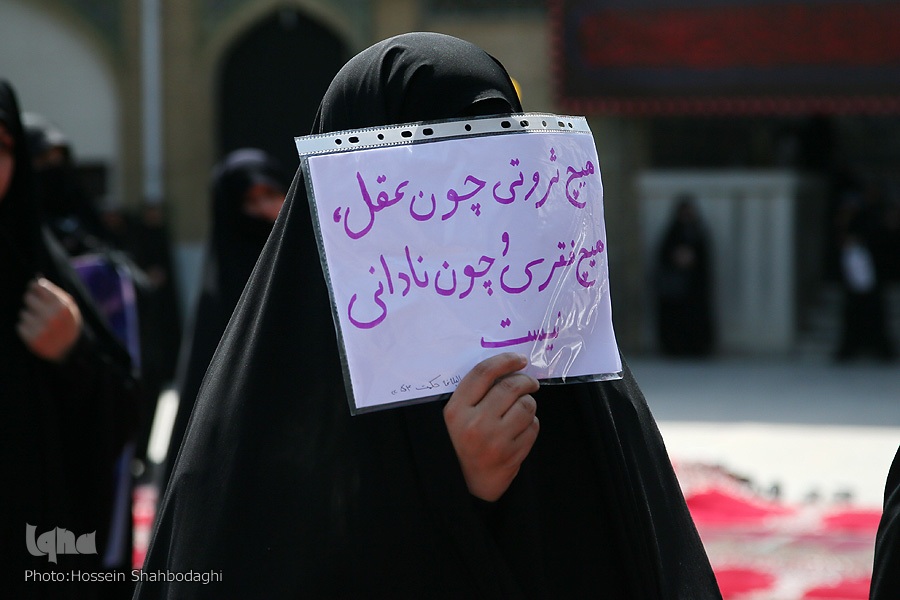 هیچ ثروتی چون عقل،
هیچ فقری و چون نادانی
نیست
حکمت ۵۴»
iqna
Photo:Hossein Shahbodaghi